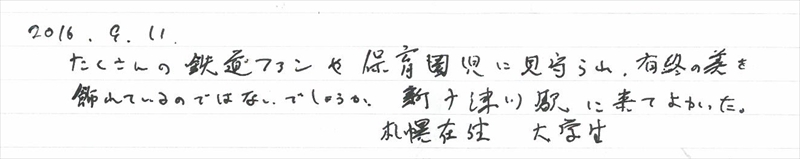 2016. 9. 11.
たくさんの鉄道ファンや保育園児に見守られ、有終の美を
飾れているのではないでしょうか。新十津川駅に来てよかった。
札幌在住 大学生